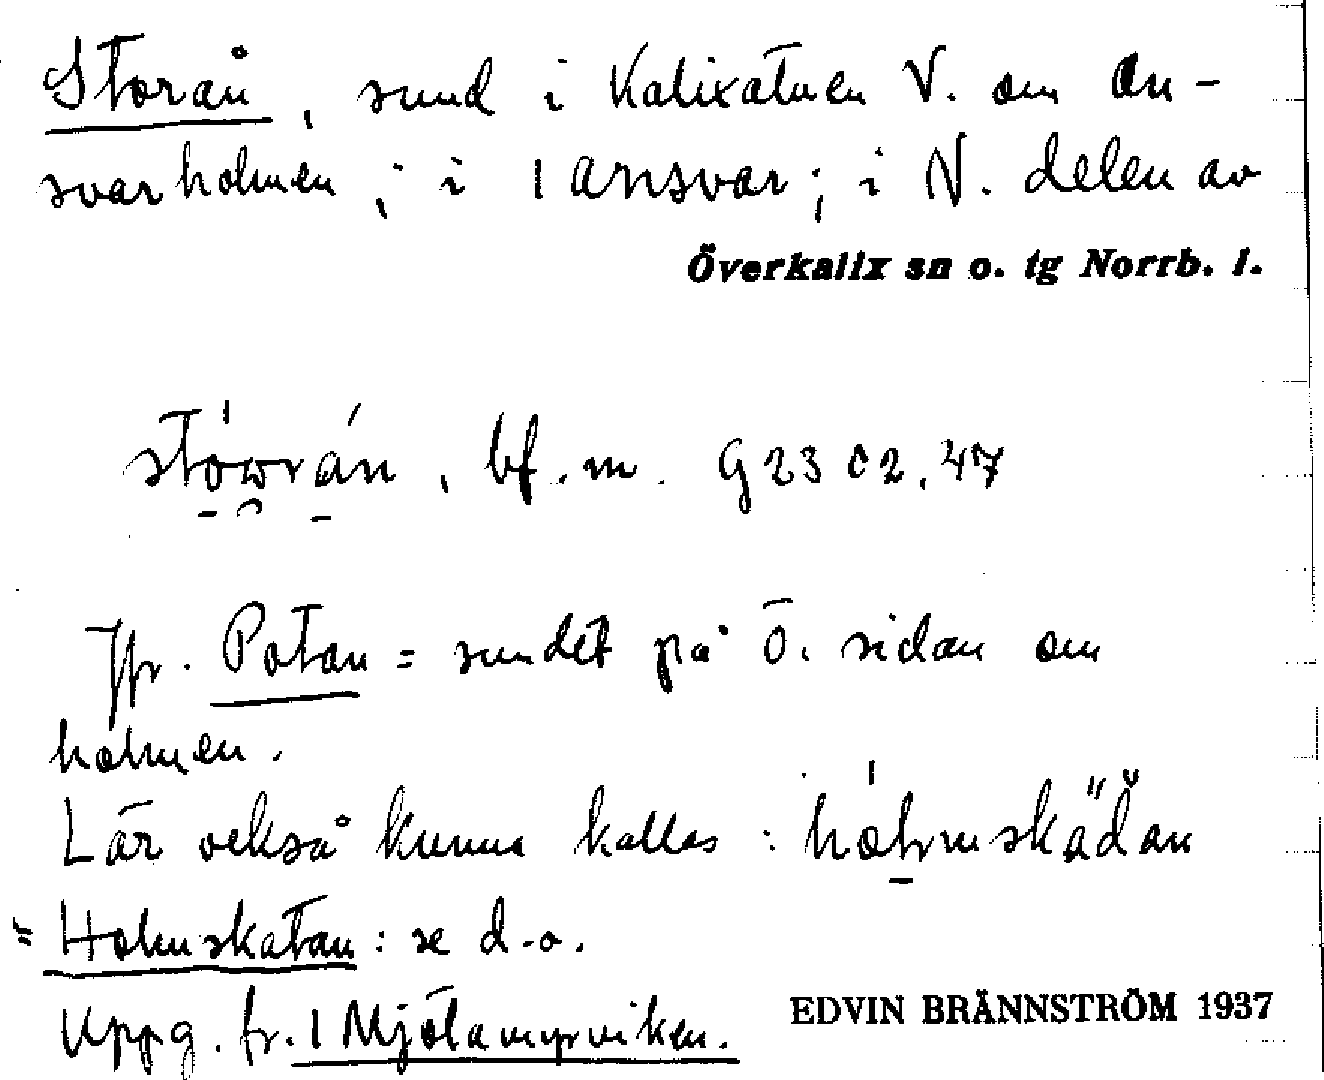 Storån, sund i Kalixälven V. om An-
svarholmen; i 1 Ansvar; i N. delen av
Överkalix sn o. tg Norrb. l.
bf. m. G 23 02.47
Jfr. Potan = sundet på Ö. sidan om
holmen.
Lär också kunna kallas:
" Holmskatan: se d.o.
Uppg. fr. 1 Mjölamyrviken.
EDVIN BRÄNNSTRÖM 1937